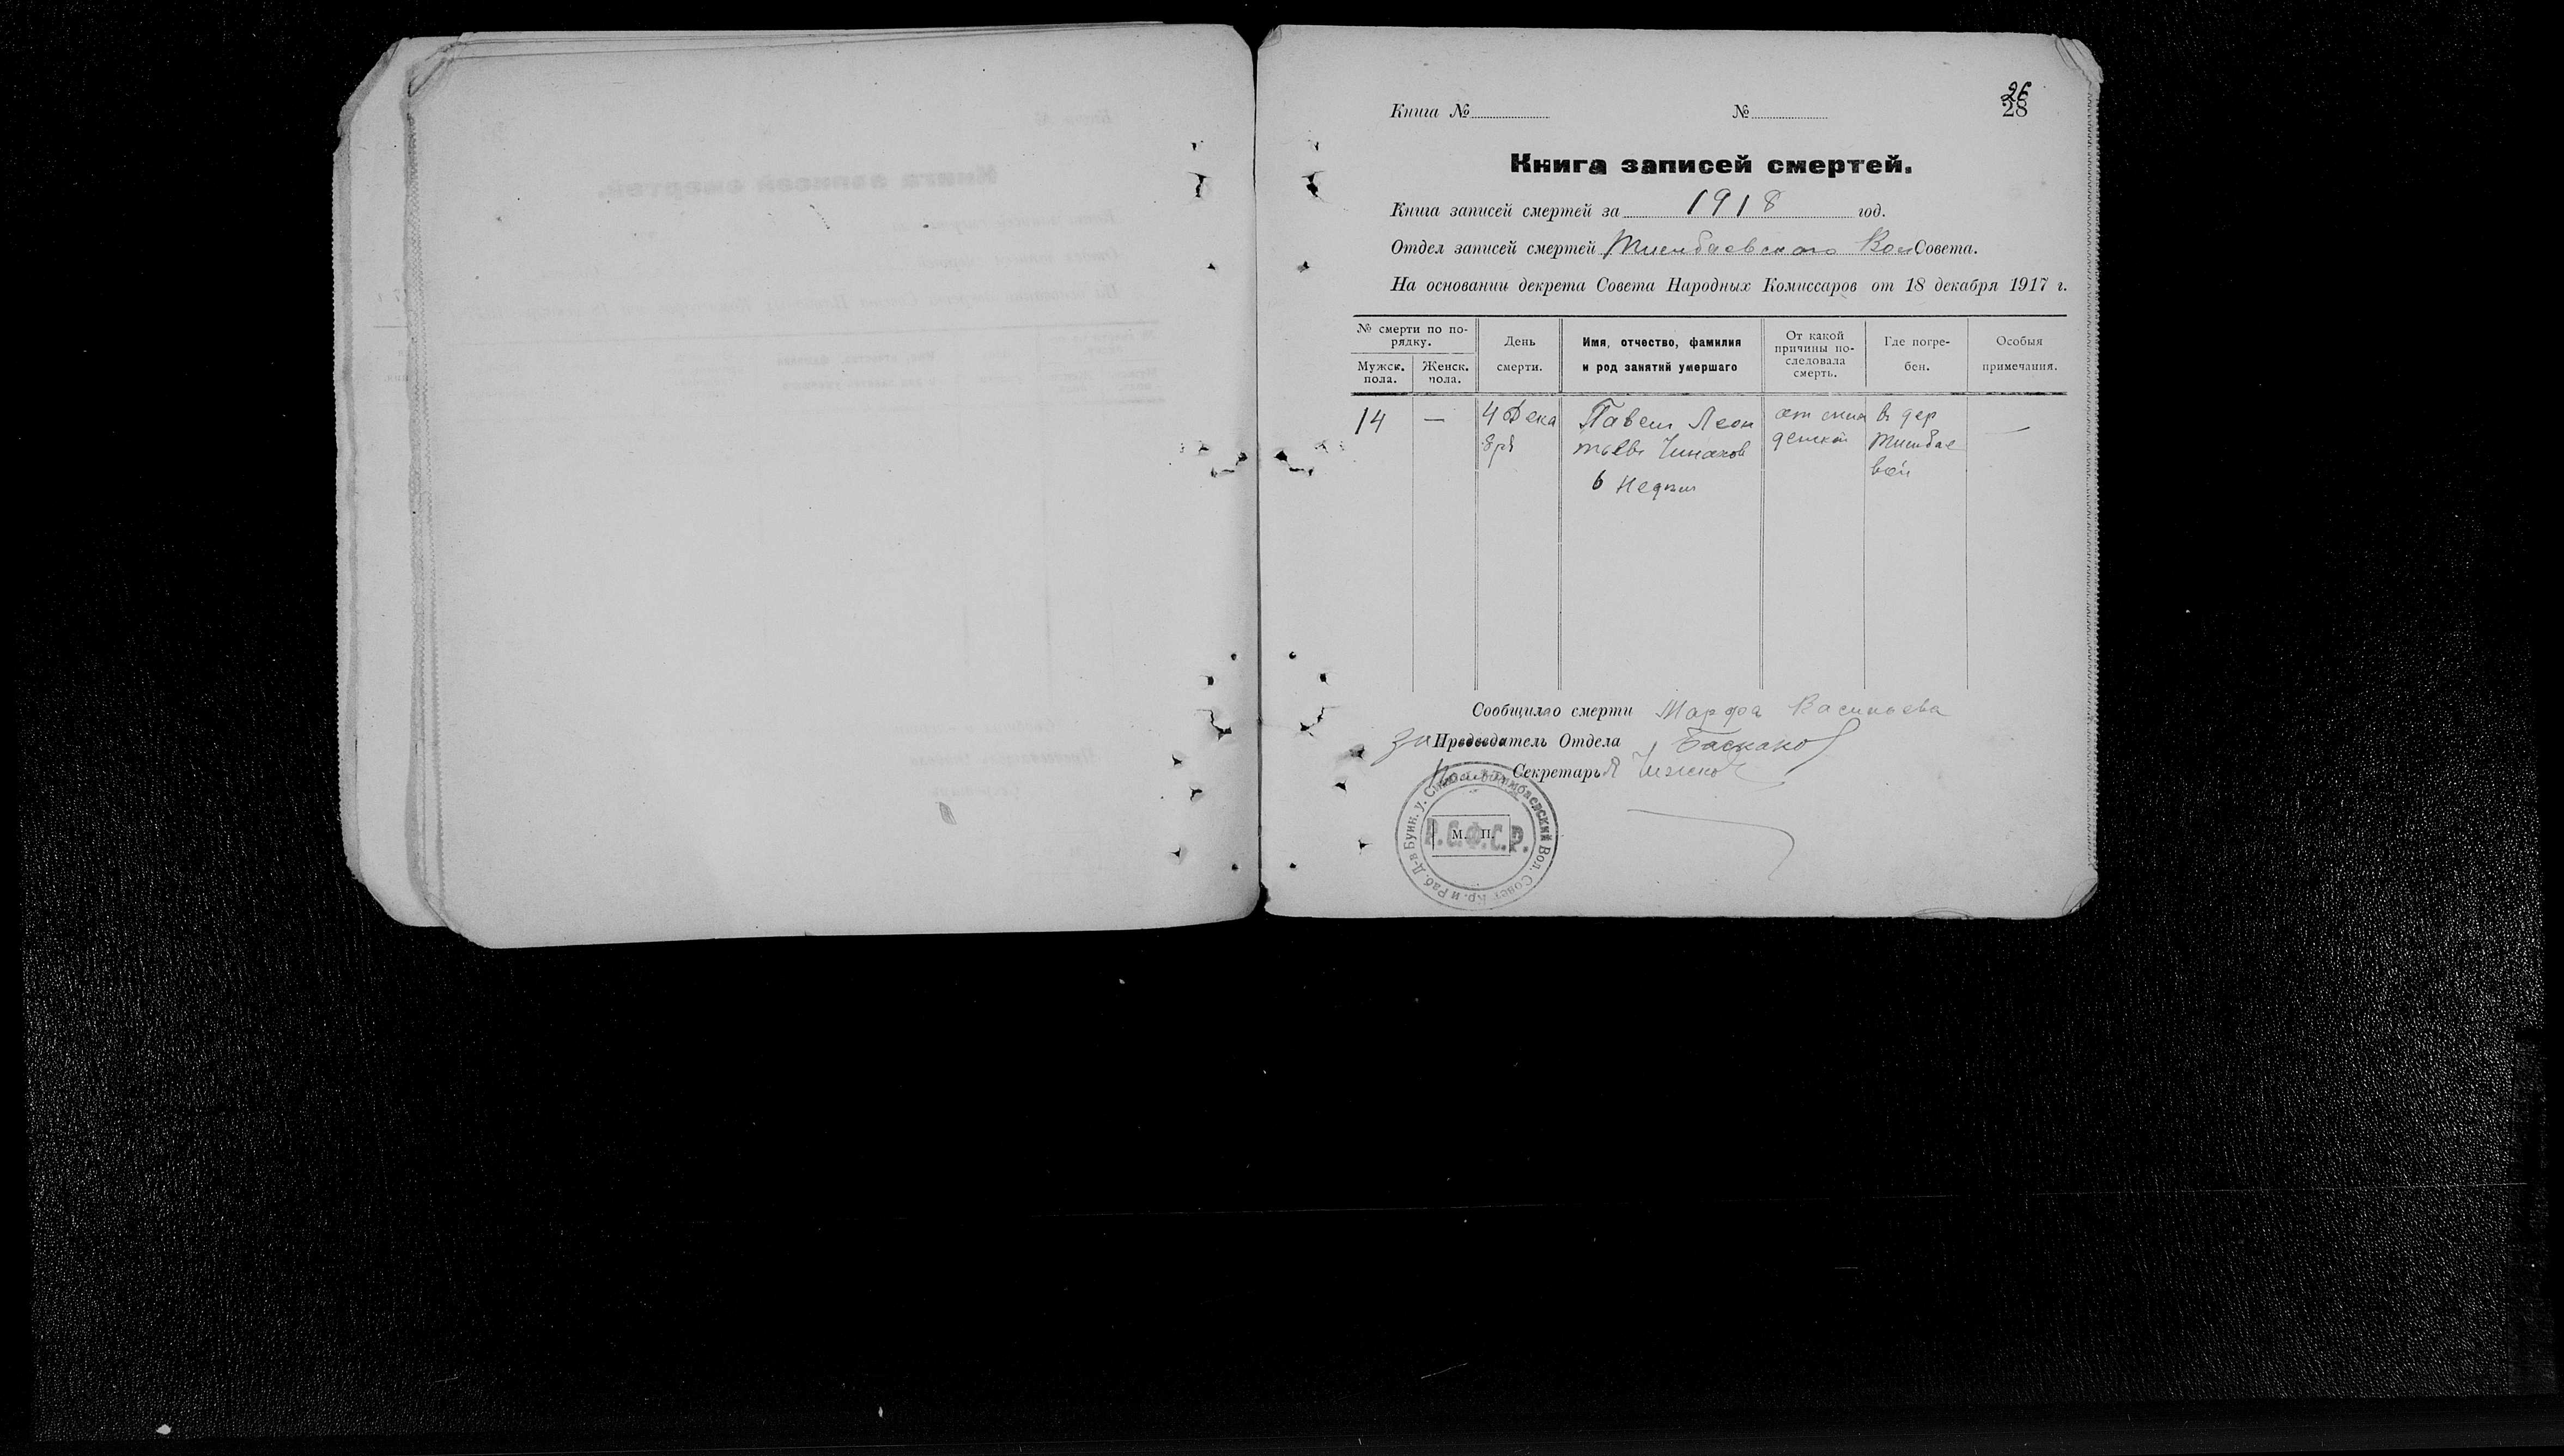 Книга №
№
26
28
Книга записей смертей.
Книга записей смертей за 1918 год.
Отдел записей смертей Тимбаевского Вол Совета.
На основании декрета Совета Народных Комиссаров от 18 декабря 1917 г.
№ смерти по порядку.
Мужск. пола.
Женск. пола.
День смерти.
Имя, отчество, фамилия и род занятий умершаго
От какой причины последовала смерть.
Где погребен.
Особыя примечания.
14
—
4 Дека
бря
Павел Леон
тьевъ
6 Недел
от
въ дер
Тимбае
вой
—
Сообщила о смерти Марфа Васильева
За Председатель Отдела Баскаков
Секретарь
Тимбаевский Вол. Совет Кр. и Раб. Д-в Буин. у.
Р.С.Ф.С.Р.
М. П.